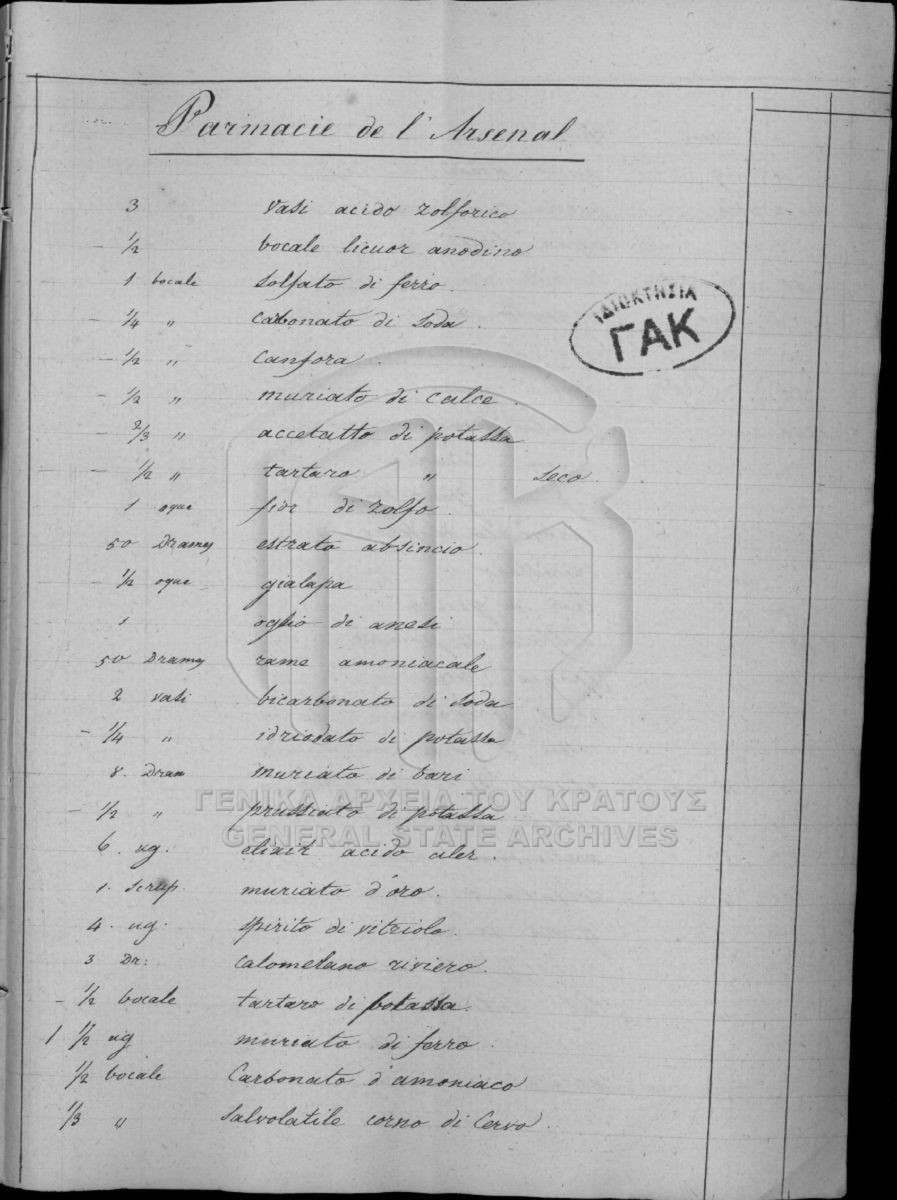 Parmacie de l'Arsenal
3 vasi acido zolforico
– 1/2 bocale licuor anodino
1 bocale solfato di ferro.
– 1/4 " carbonato di soda.
– 1/2 " Canfora.
– 1/2 " muriato di calce.
– 2/3 " accetatto di potassa
– 1/2 " tartaro " seco.
1 oque fior di zolfo.
50 Drames estrato absincio.
– 1/2 oque gialapa
1 oglio di anesi
50 Drames rame amoniacale
2 vasi bicarbonato di soda
– 1/4 " idriodato di potassa
8. Dram muriato di bari
– 1/2 " prussiato di potassa
6. ug: elixir acido aler.
1. scrup. muriato d'oro.
4. ug. spirito di vitriolo.
3 Dr: calomelano riviero.
– 1/2 bocale tartaro di potassa.
1 1/2 ug muriato di ferro.
1/2 bocale Carbonato d'amoniaco
1/3 " salvolatile corno di Cervo.
ΙΔΙΟΚΤΗΣΙΑ
ΓΑΚ
ΓΕΝΙΚΑ ΑΡΧΕΙΑ ΤΟΥ ΚΡΑΤΟΥΣ
GENERAL STATE ARCHIVES